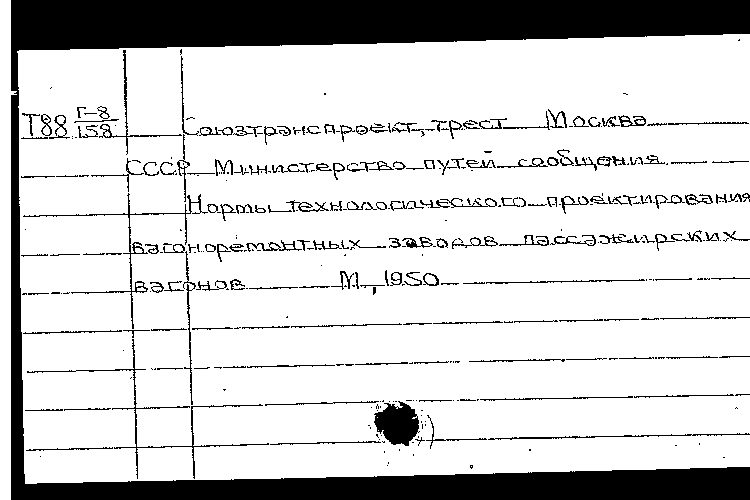 Т88 Г-8/158 Союзтранспроект, трест Москва
СССР Министерство путей сообщения
Нормы технологического проектирования
вагоноремонтных заводов пассажирских
вагонов М, 1950